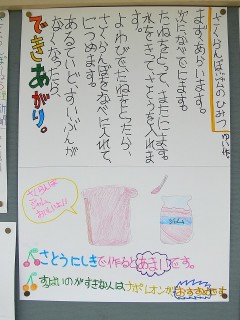 さくらんぼジャムのひみつ
まずあらいます。
次になべでにます。
たねをとって、またにます。
水をきって、さとうを入れます。
よわびでたねをとったら、
さくらんぼをなべに入れて、
につめます。
あるていど、すいぶんが
なくなったら、
できあがり。
ジャム
さとうにしきで作るとあまいです。
すっぱいのがすきな人は、ナポレオンがおすすめです